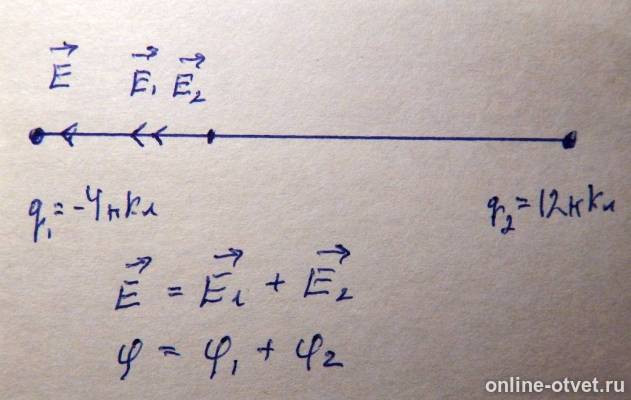 E⃗ E⃗₁ E⃗₂
q₁ = -4нКл q₂ = 12нКл
E⃗ = E⃗₁ + E⃗₂
φ = φ₁ + φ₂
online-otvet.ru